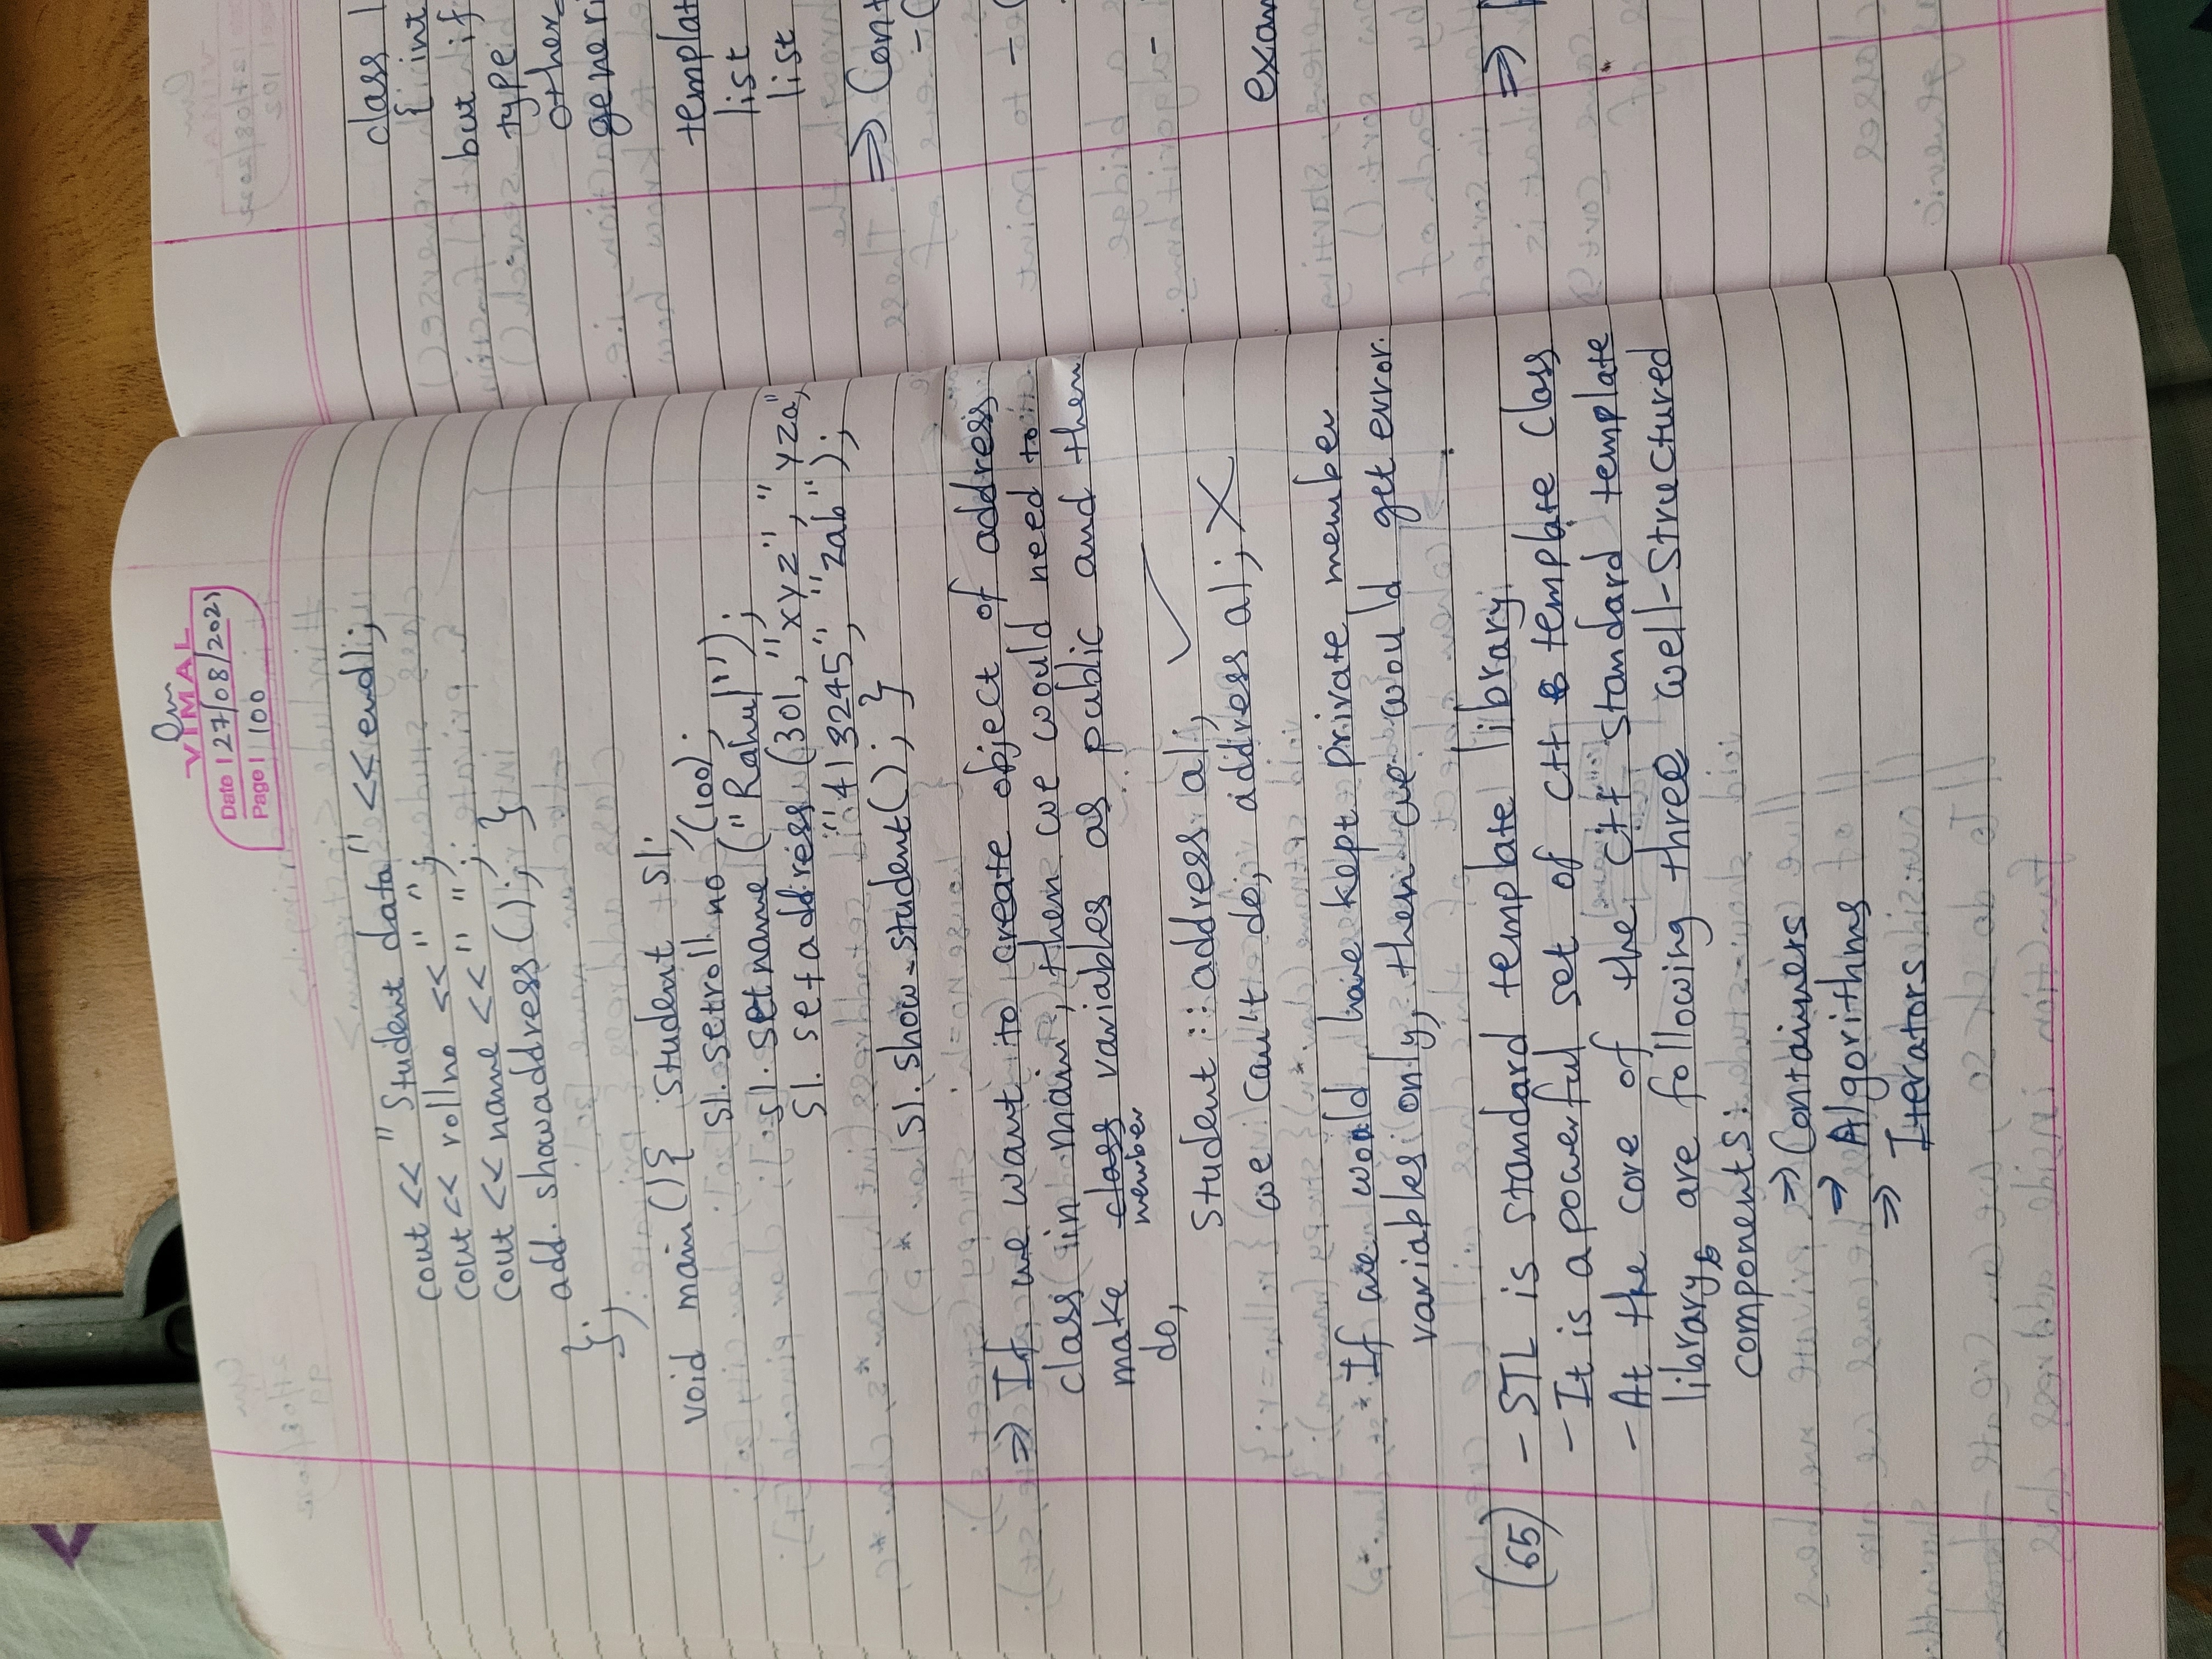 Om
VIMAL
Date 27/08/202
Page 100
cout << "Student data" << endl;
cout << rollno << " ";
cout << name << " ";
add. showaddress(); }
};
void main(){ student s1;
s1. setroll no (100);
s1. setname ("Rahul");
s1. setaddress (301, "xyz", "yza",
"413245", "zab");
s1. show_student(); }
⇒ If we want to create object of address
class in main, then we would need to
make class variables as public and then
member
do,
Student :: address a1; ✓
we can't do; address a1; ✗
* If we would have kept private member
variables only, then we would get error.
(65) - STL is standard template library
- It is a powerful set of C++ template class
- At the core of the C++ standard template
library, are following three well-structured
components:
⇒ Containers
⇒ Algorithms
⇒ Iterators
class
{ int
but if
type
other
list
list
⇒
⇒